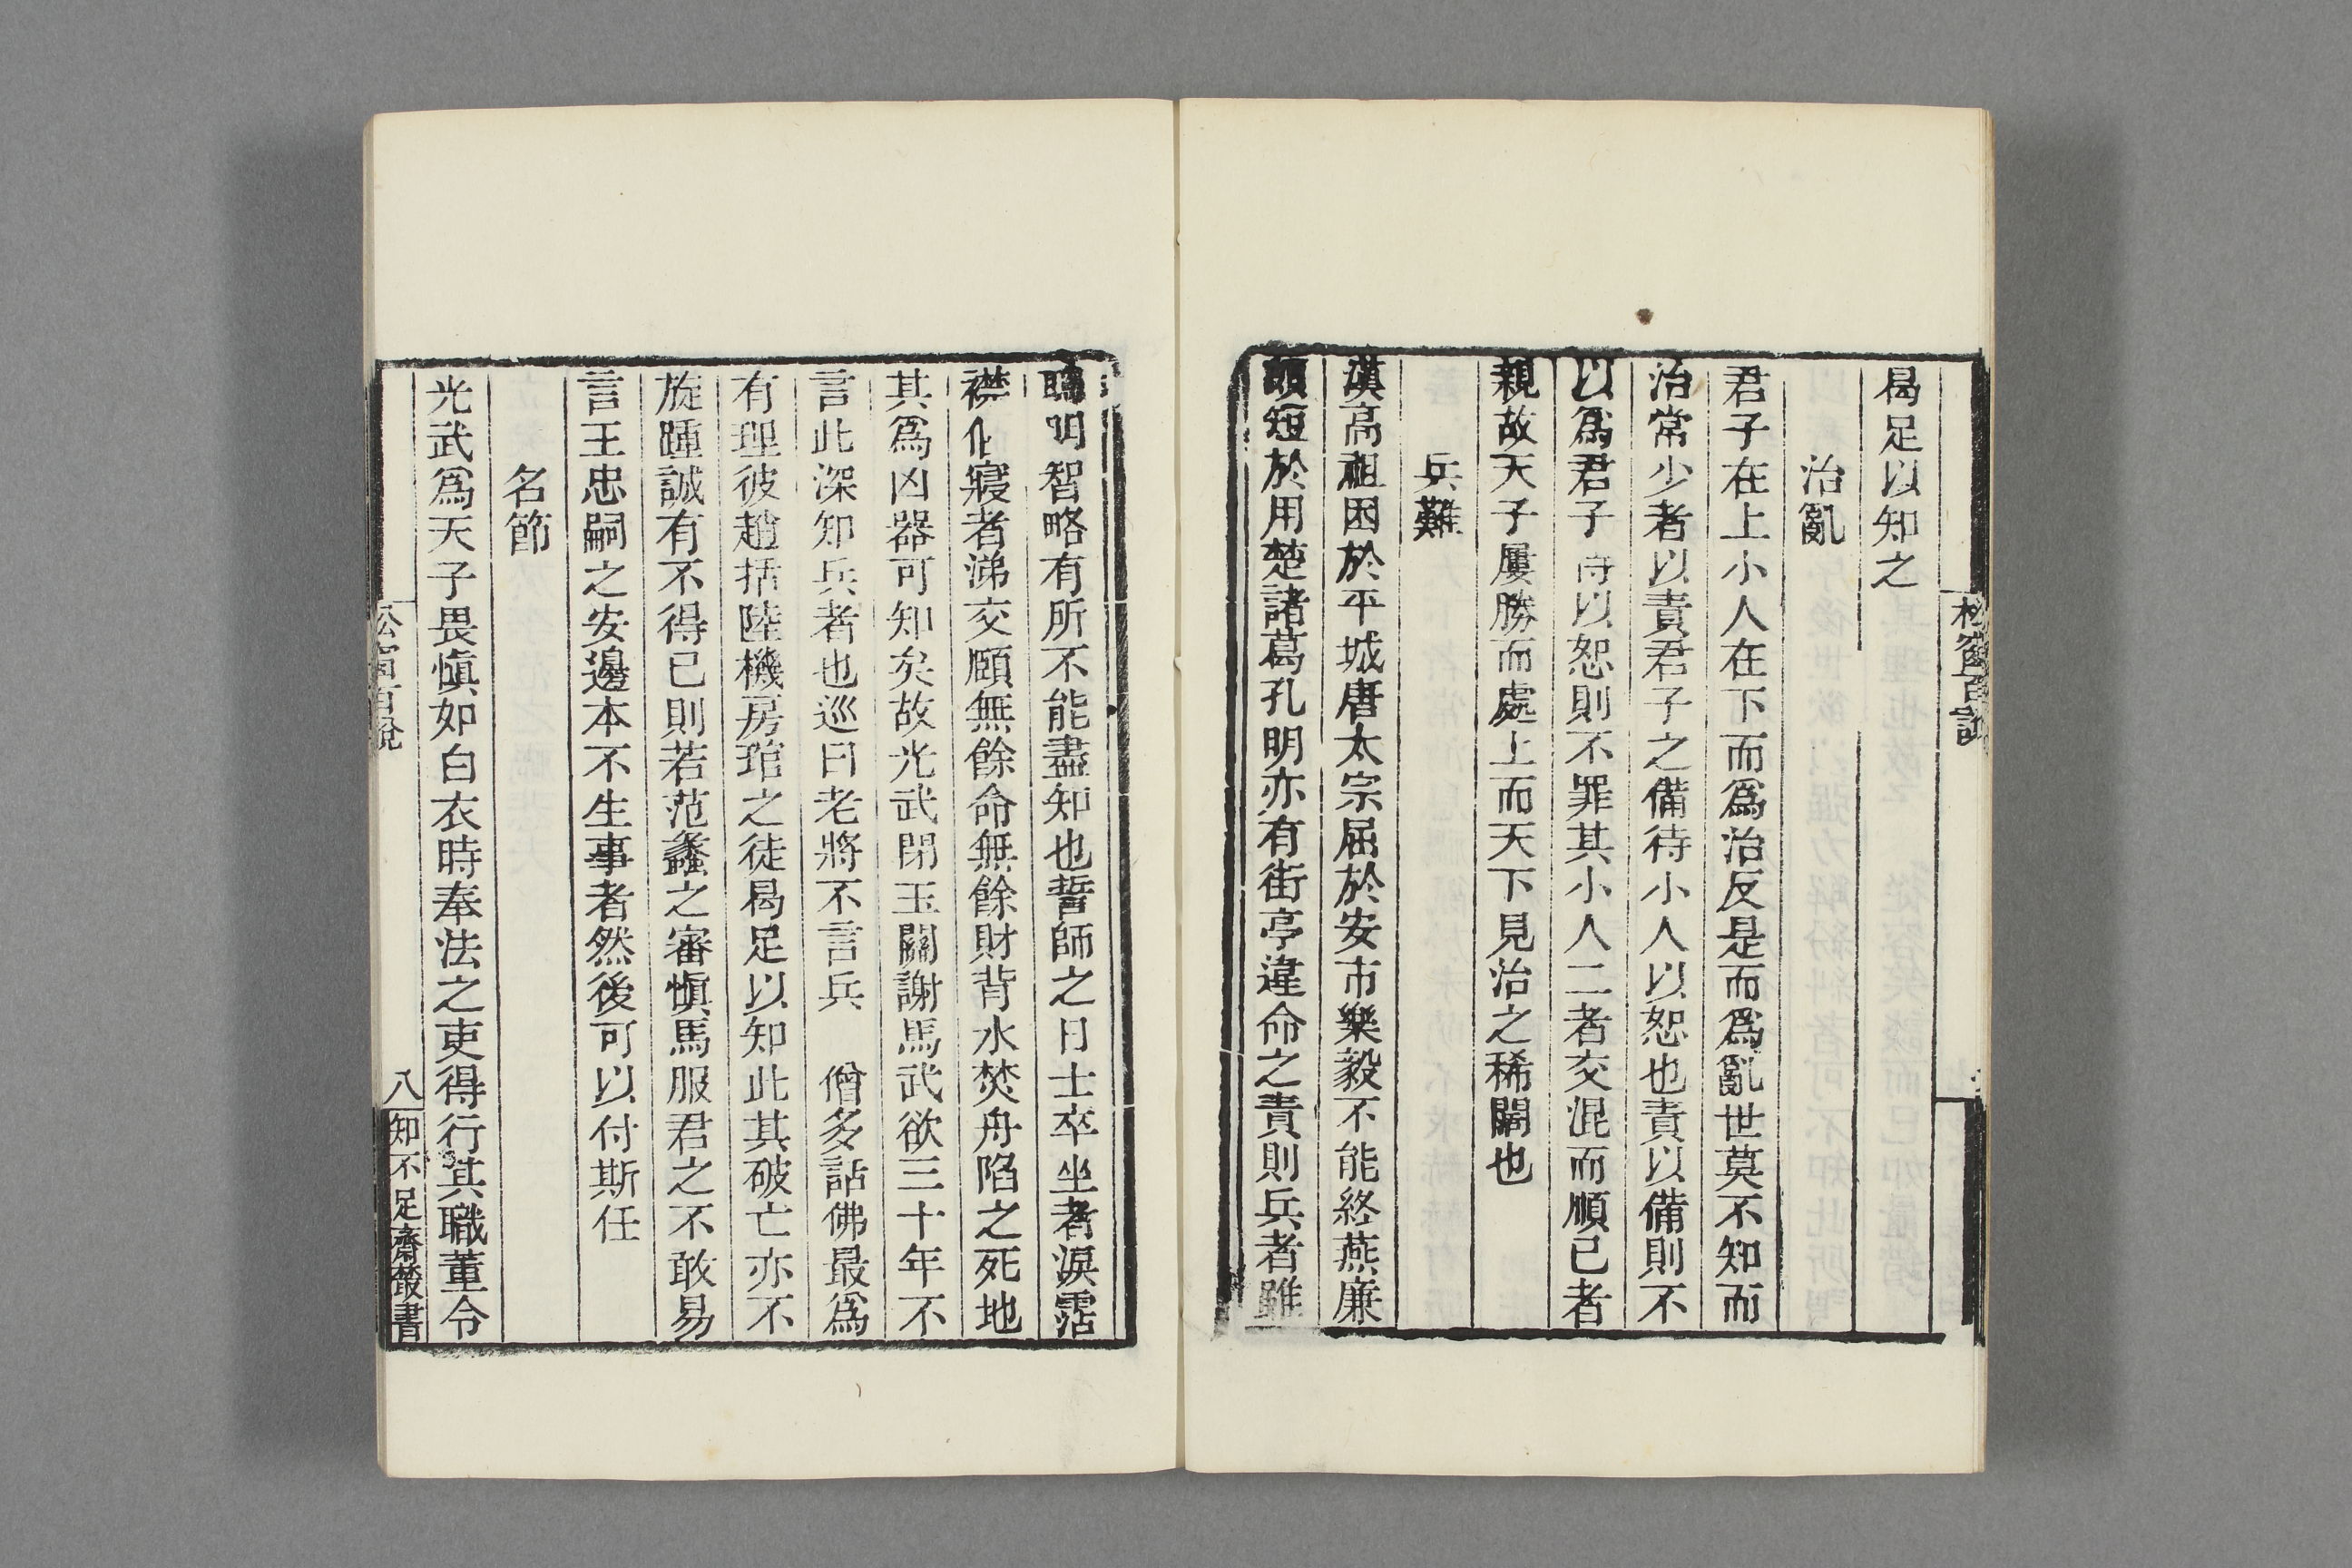 松窗百說
曷足以知之
治亂
君子在上小人在下而爲治反是而爲亂世莫不知而
治常少者以責君子之備待小人以恕也責以備則不
以爲君子待以恕則不罪其小人二者交混而順已者
親故天子屢勝而處上而天下見治之稀闊也
兵難
漢高祖困於平城唐太宗屈於安市樂毅不能終燕廉
頗短於用楚諸葛孔明亦有街亭違命之責則兵者雖
聰明智略有所不能盡知也誓師之日士卒坐者淚霑
襟仆寢者涕交頤無餘命無餘財背水焚舟陷之死地
其爲凶器可知矣故光武閉玉關謝馬武欲三十年不
言此深知兵者也巡曰老將不言兵 僧多詁佛最爲
有理彼趙括陸機房琯之徒曷足以知此其破亡亦不
旋踵誠有不得已則若范蠡之審愼馬服君之不敢易
言王忠嗣之安邊本不生事者然後可以付斯任
名節
光武爲天子畏愼如白衣時奉法之吏得行其職董令
松窗百說
八
知不足齋叢書